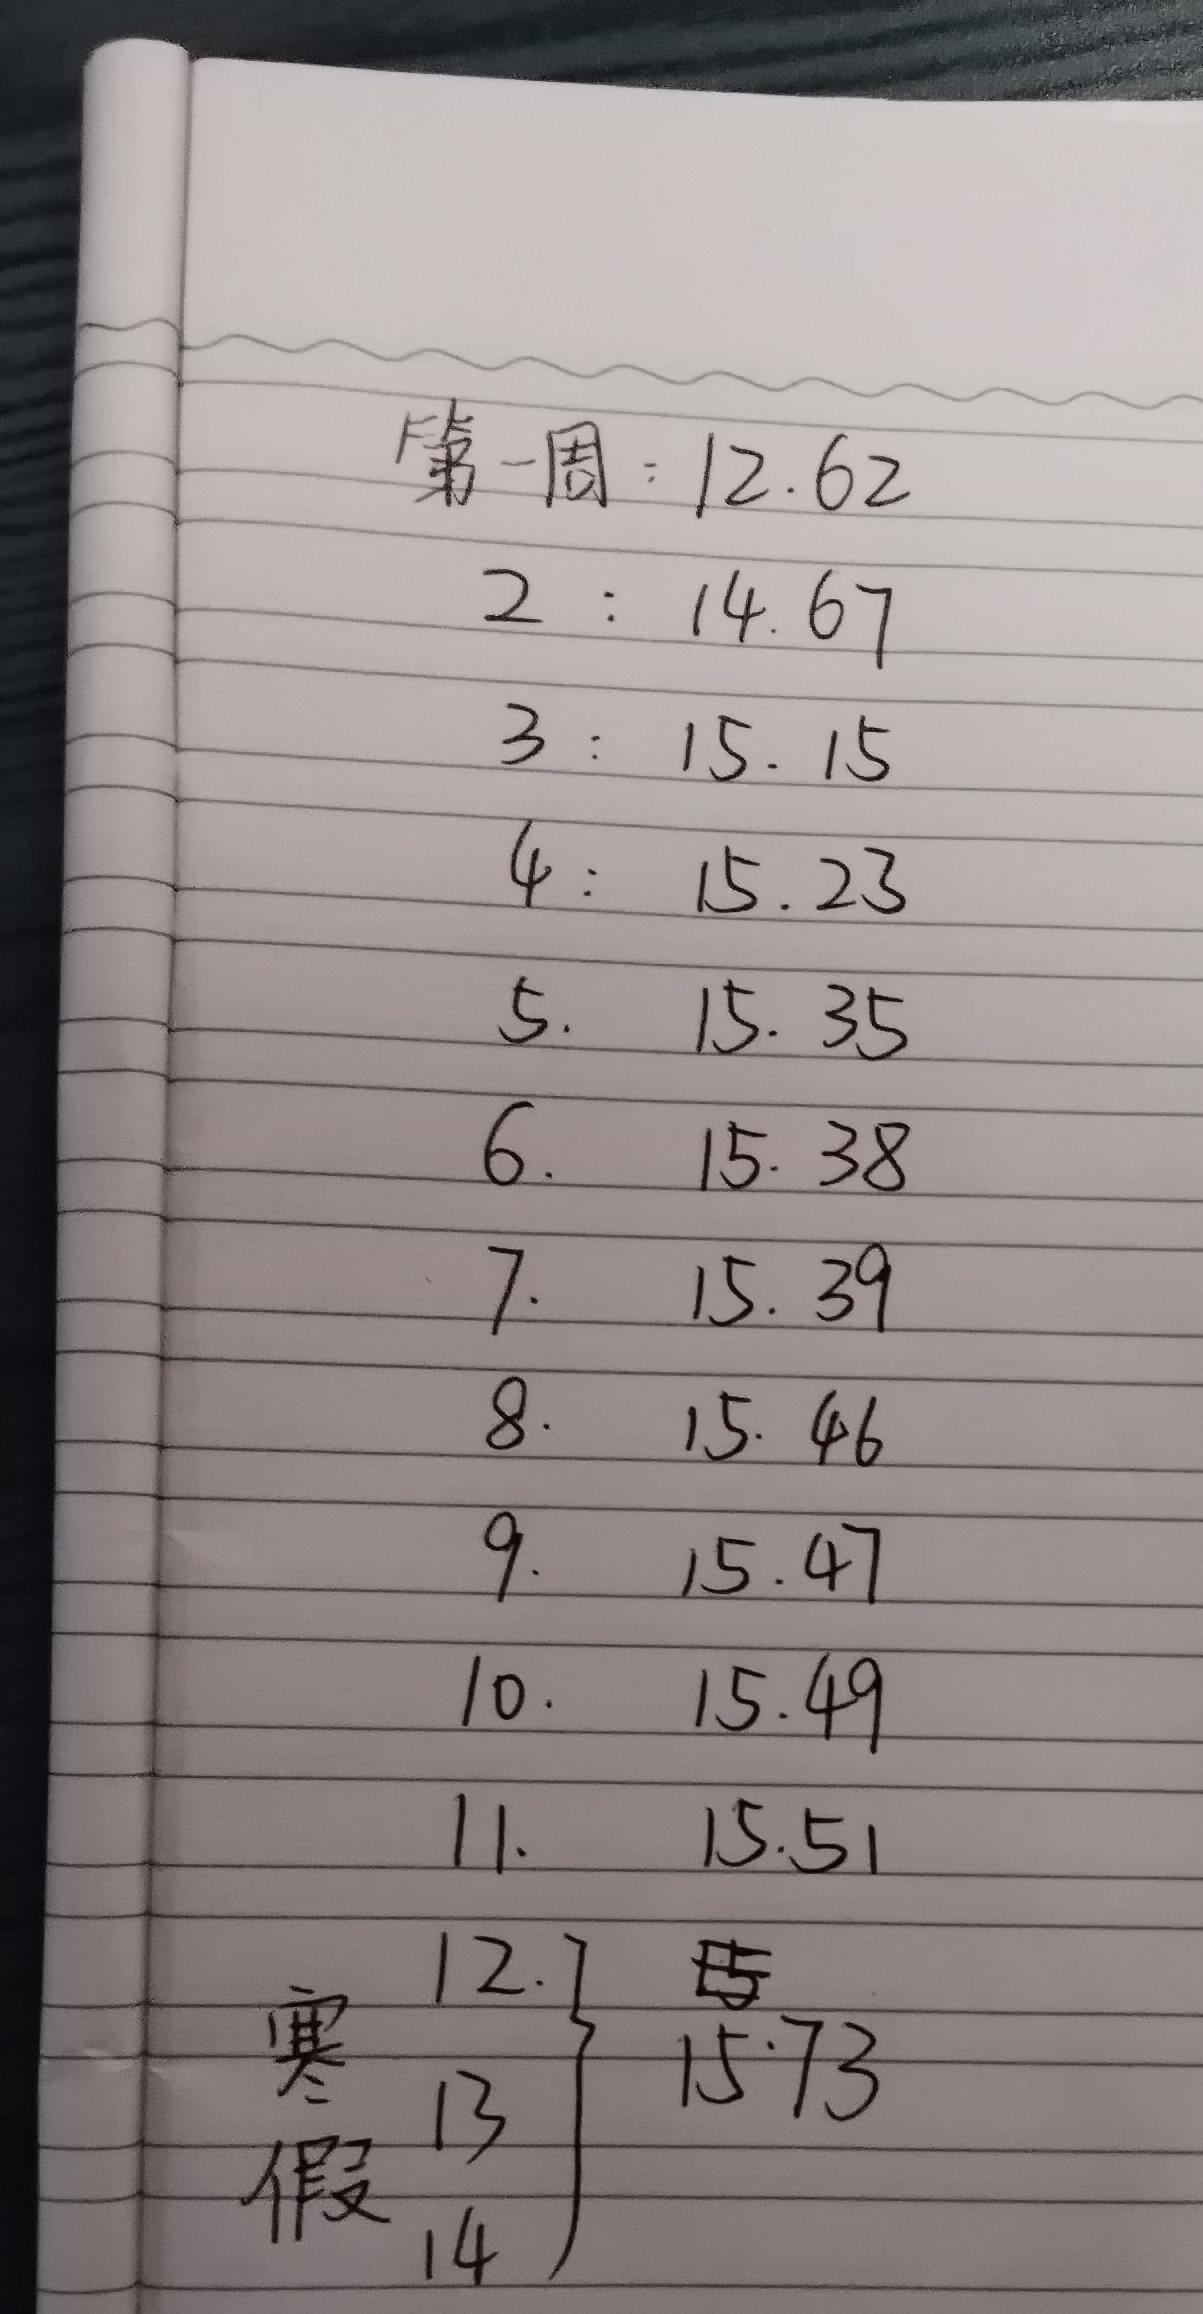 第一周：12.62
2：14.67
3：15.15
4：15.23
5. 15.35
6. 15.38
7. 15.39
8. 15.46
9. 15.47
10. 15.49
11. 15.51
寒假
12.
13
14
15.73